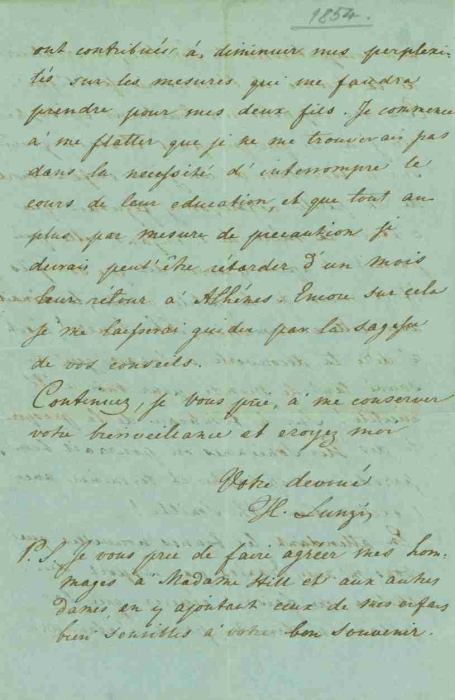 1854.
ont contribués à, diminuir mes perplexi-
tés sur les mesures qui me faudra
prendre pour mes deux fils. Je commence
à me flatter que je ne me trouverai pas
dans la necessité d'interrompre le
cours de leur education, et que tout au
plus, par mesure de precaution je
devrai peut'être rétarder d'un mois
leur retour à Athénes. Encore sur cela
je me laisserai guider par la sagesse
de vos conseils.
Continuez, je vous prie, à me conserver
votre bienveillance et croyez moi
Votre devoué
H. Lunzi
P. S. Je vous prie de faire agréer mes hom-
mages à Madame Hill et aux autres
dames en y ajoutant ceux de mes enfans
bien sensibles à votre bon souvenir.